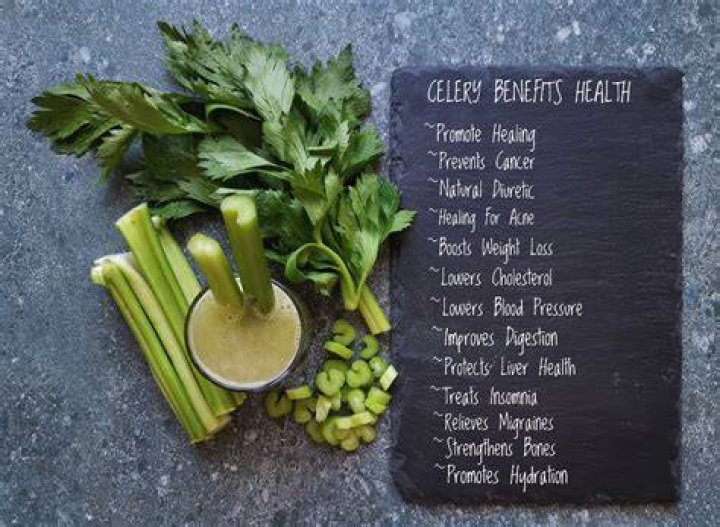 CELERY BENEFITS HEALTH
~Promote Healing
~Prevents Cancer
~Natural Diuretic
~Healing For Acne
~Boosts Weight Loss
~Lowers Cholesterol
~Lowers Blood Pressure
~Improves Digestion
~Protects Liver Health
~Treats Insomnia
~Relieves Migraines
~Strengthens Bones
~Promotes Hydration